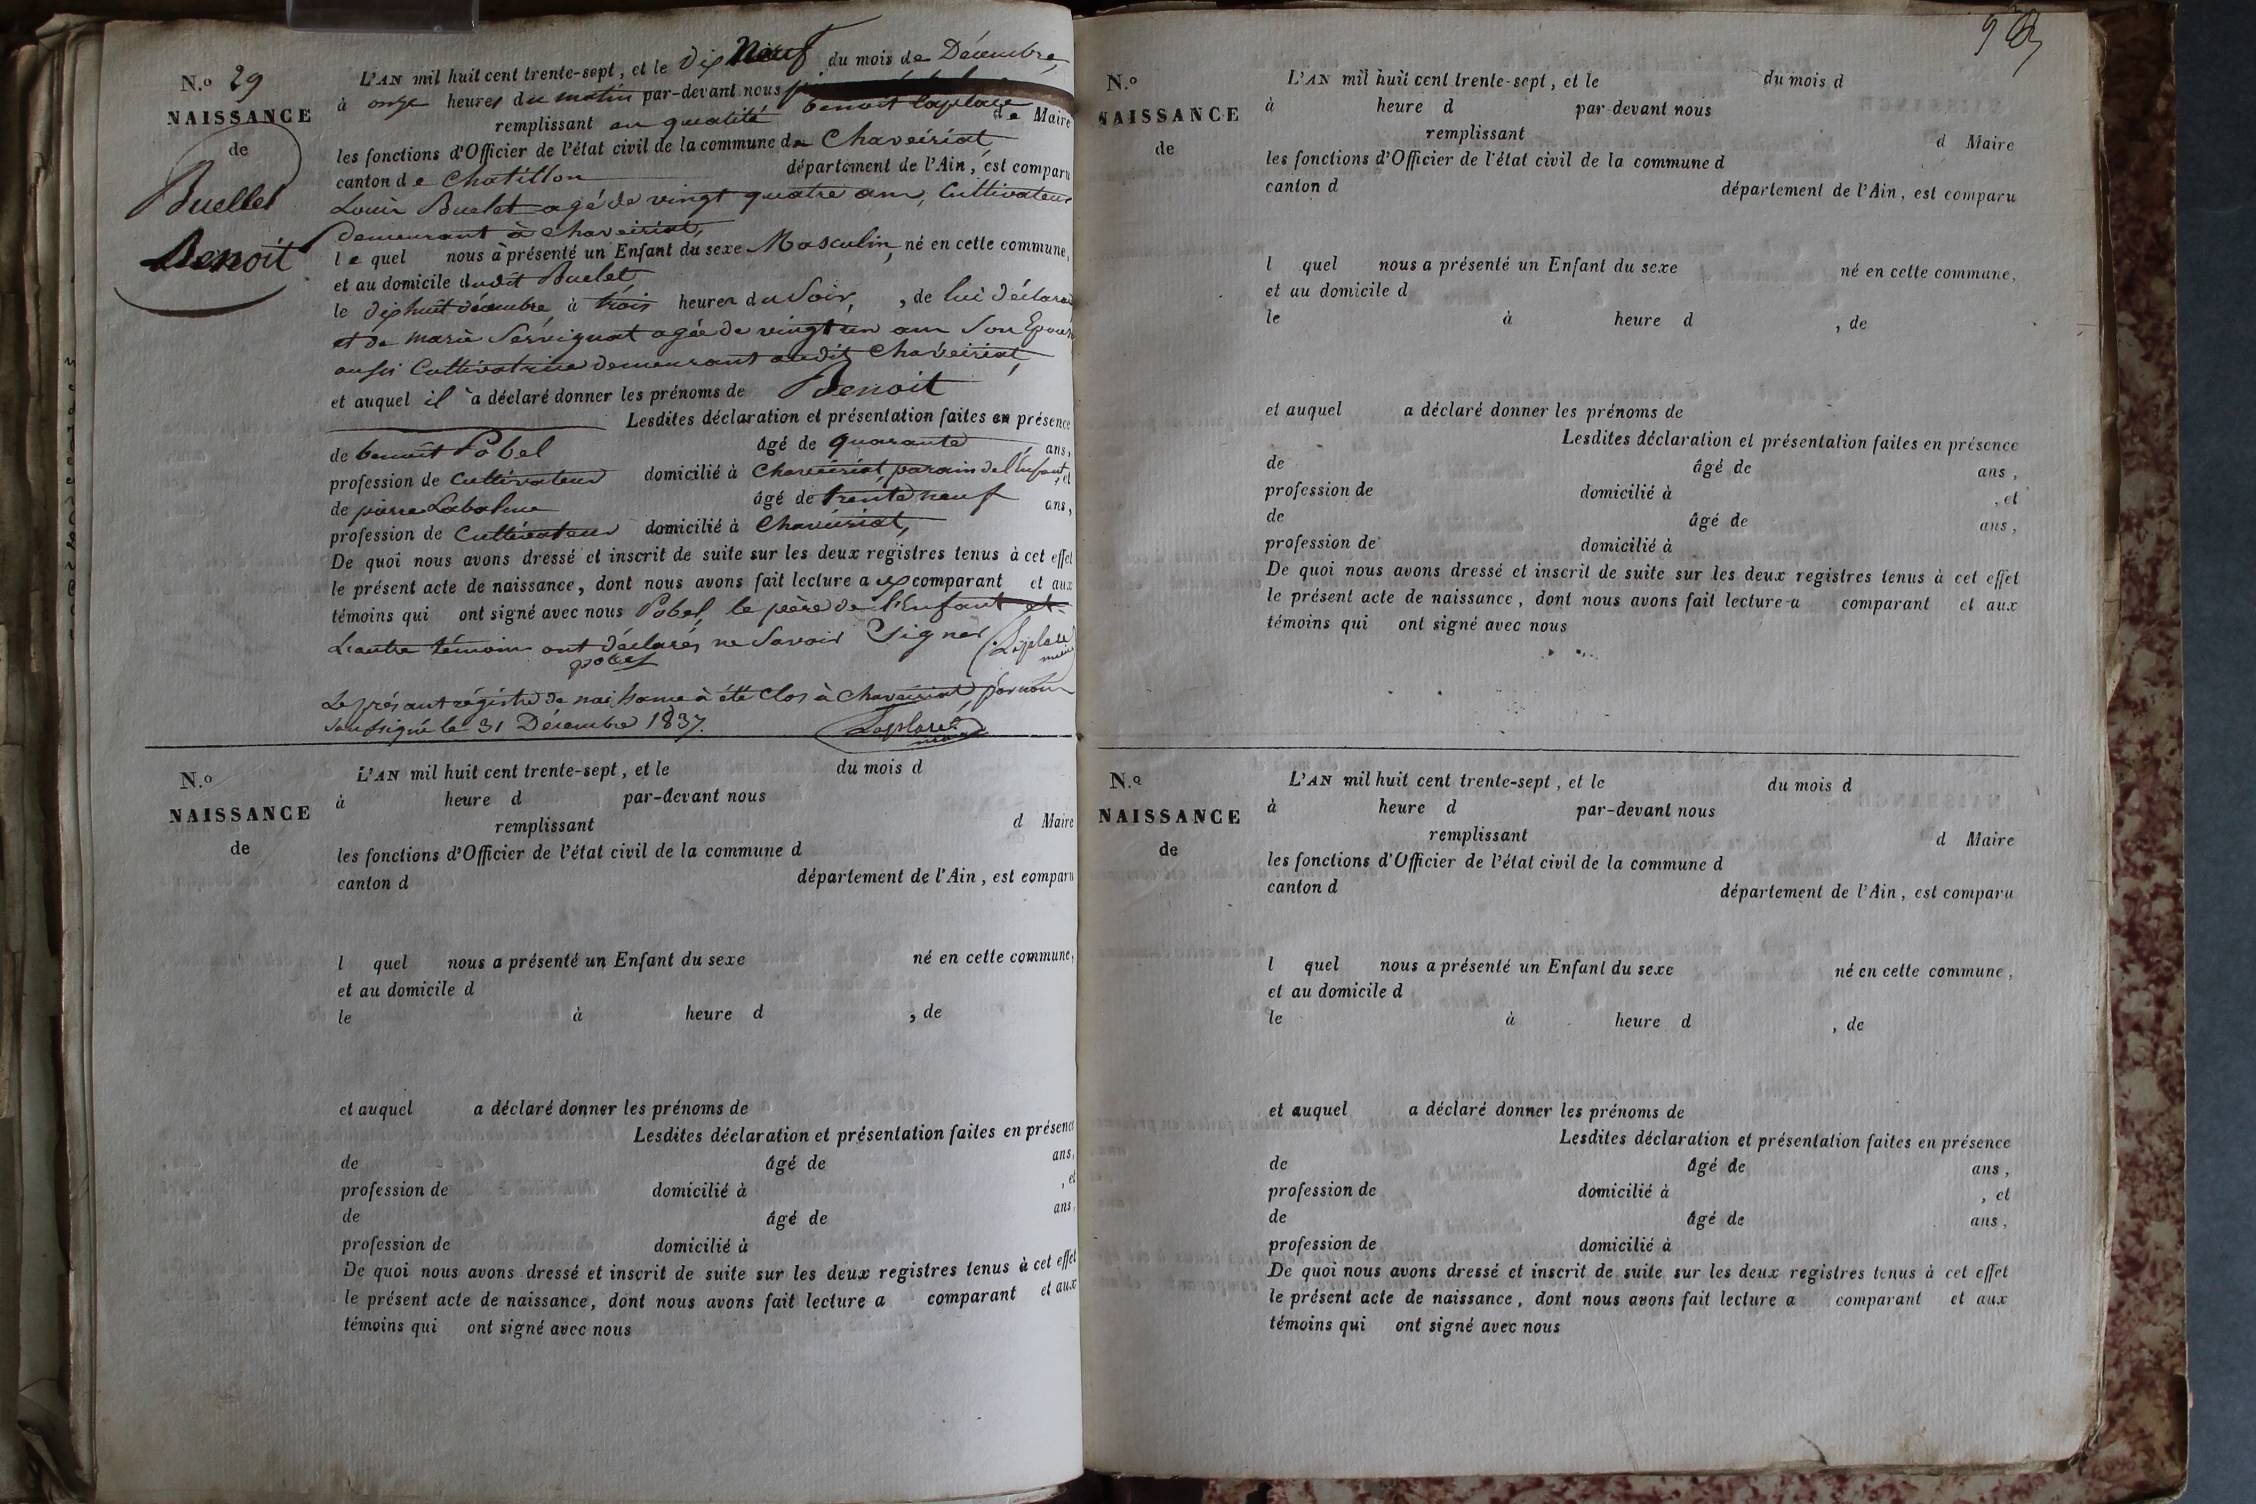 N.o 29
NAISSANCE
de
Buellet
Benoit
L'AN mil huit cent trente-sept, et le dix Neuf du mois de Décembre,
à onze heures du matin par-devant nous
benoit Laplace
remplissant en qualité de Maire
les fonctions d'Officier de l'état civil de la commune de Chaveiriat
canton de Chatillon département de l'Ain, est comparu
Louis Buelet agé de vingt quatre ans, Cultivateur
demeurant à Chaveiriat,
le quel nous à présenté un Enfant du sexe Masculin, né en cette commune,
et au domicile dudit Buelet,
le dix huit décembre à trois heures du Soir, , de lui déclarant
et de marie Servignat agée de vingt un ans Son Epouse
aussi Cultivatrice demeurant audit Chaveiriat,
et auquel il a déclaré donner les prénoms de Benoit
Lesdites déclaration et présentation faites en présence
de benoit Pobel âgé de quarante ans,
profession de Cultivateur domicilié à Chaveiriat, parain de l'Enfant, et
de pierre Labalme âgé de trente neuf ans,
profession de Cultivateur domicilié à Chaveiriat,
De quoi nous avons dressé et inscrit de suite sur les deux registres tenus à cet effet
le présent acte de naissance, dont nous avons fait lecture aux comparant et aux
témoins qui ont signé avec nous Pobel, le père de l'Enfant et
L'autre témoin ont déclarés ne Savoir Signer
Laplace
maire
pobel
Le présant régistre de naissance à été Clos à Chaveiriat, par nous
Soussigné le 31 Décembre 1837.
Laplace
maire
N.o
NAISSANCE
de
L'AN mil huit cent trente-sept, et le du mois d
à heure d par-devant nous
remplissant d Maire
les fonctions d'Officier de l'état civil de la commune d
canton d département de l'Ain, est comparu
l quel nous a présenté un Enfant du sexe né en cette commune,
et au domicile d
le à heure d , de
et auquel a déclaré donner les prénoms de
Lesdites déclaration et présentation faites en présence
de âgé de ans,
profession de domicilié à , et
de âgé de ans,
profession de domicilié à
De quoi nous avons dressé et inscrit de suite sur les deux registres tenus à cet effet
le présent acte de naissance, dont nous avons fait lecture a comparant et aux
témoins qui ont signé avec nous
N.o
NAISSANCE
de
L'AN mil huit cent trente-sept, et le du mois d
à heure d par-devant nous
remplissant d Maire
les fonctions d'Officier de l'état civil de la commune d
canton d département de l'Ain, est comparu
l quel nous a présenté un Enfant du sexe né en cette commune,
et au domicile d
le à heure d , de
et auquel a déclaré donner les prénoms de
Lesdites déclaration et présentation faites en présence
de âgé de ans,
profession de domicilié à , et
de âgé de ans,
profession de domicilié à
De quoi nous avons dressé et inscrit de suite sur les deux registres tenus à cet effet
le présent acte de naissance, dont nous avons fait lecture a comparant et aux
témoins qui ont signé avec nous
N.o
NAISSANCE
de
L'AN mil huit cent trente-sept, et le du mois d
à heure d par-devant nous
remplissant d Maire
les fonctions d'Officier de l'état civil de la commune d
canton d département de l'Ain, est comparu
l quel nous a présenté un Enfant du sexe né en cette commune,
et au domicile d
le à heure d , de
et auquel a déclaré donner les prénoms de
Lesdites déclaration et présentation faites en présence
de âgé de ans,
profession de domicilié à , et
de âgé de ans,
profession de domicilié à
De quoi nous avons dressé et inscrit de suite sur les deux registres tenus à cet effet
le présent acte de naissance, dont nous avons fait lecture a comparant et aux
témoins qui ont signé avec nous